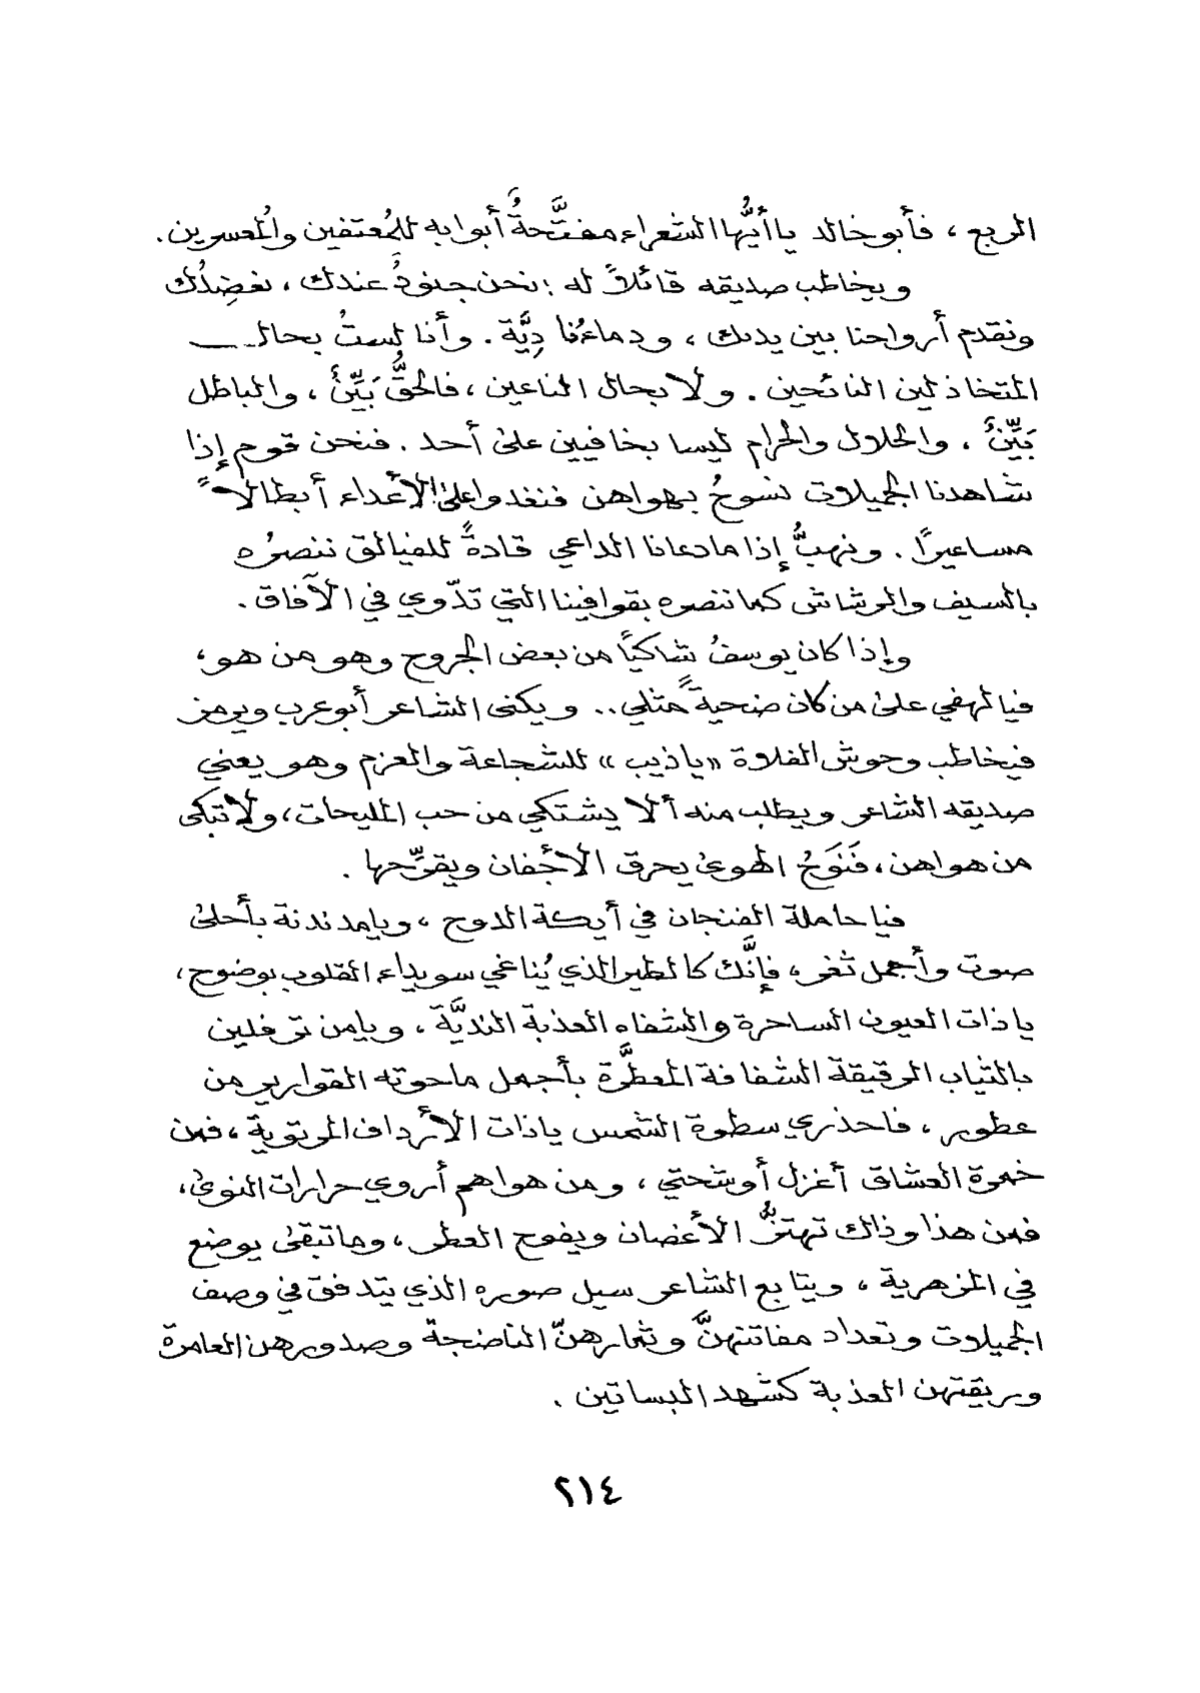 الربع ، فأبو خالد يا أيُّها الشعراء مفتَّحةٌ أبوابه للمُعتفين والمُعسرين .
ويخاطب صديقه قائلاً له : نحن جنودٌ عندك ، نعضِدُك
ونقدم أرواحنا بين يديك ، ودماءُنا دِيَّة . وأنا لستُ بحال
المتخاذلين النائحين . ولا بحال الناعين ، فالحقُّ بَيِّنٌ ، والباطل
بَيِّنٌ ، والحلال والحرام ليسا بخافيين على أحد . فنحن قوم إذا
شاهدنا الجميلات نسوحُ بهواهن فنغدوا على الأعداء أبطالاً
مساعيراً . ونهبُّ إذا مادعانا الداعي قادةً للفيالق ننصرُه
بالسيف والرشاش كما ننصره بقوافينا التي تدّوي في الآفاق .
وإذا كان يوسفُ شاكياً من بعض الجروح وهو من هو ،
فيالهفي على من كان ضحيةً مثلي .. ويكنى الشاعر أبو عرب ويرمز
فيخاطب وحوش الفلاة « ياذيب » للشجاعة والعزم وهو يعني
صديقه الشاعر ويطلب منه ألا يشتكي من حب المليحات ، ولا تبكى
من هواهن ، فَنَوَحُ الهوى يحرق الأجفان ويقرِّحها .
فيا حاملة الفنجان في أيكة الدوح ، ويامدندنة بأحلى
صوت وأجمل ثغر ، فإنَّك كالطير الذي يُناغي سويداء القلوب بوضوح ،
ياذات العيون الساحرة والشفاه العذبة النديَّة ، ويامن ترفلين
بالثياب الرقيقة الشفافة المعطَّرة بأجمل ماحوته القوارير من
عطور ، فاحذري سطوة الشمس ياذات الأرداف المرتوية ، فمن
خمرة العشاق أغزل أوشحتي ، ومن هواهم أروي حرارات النوى ،
فمن هذا وذاك تهتزُّ الأغصان ويفوح العطر ، وماتبقى يوضع
في المزهرية ، ويتابع الشاعر سيل صوره الذي يتدفق في وصف
الجميلات وتعداد مفاتنهنَّ وثمارهنّ الناضجة وصدورهن العامرة
وريقتهن العذبة كشهد البساتين .
٢١٤